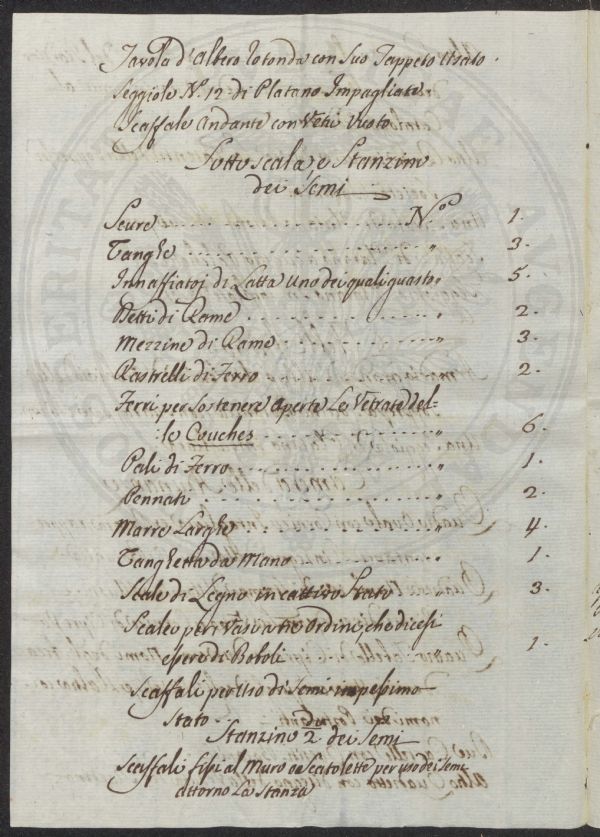 Tavola d'Albero rotonda con suo Tappeto Usato.
Seggiole N.º 12 di Platano Impagliate
Scaffale andante con Vetri Vuoto
Sottoscala e Stanzino
dei Semi
Scure . . . . . . . . . . N.º 1.
Vanghe . . . . . . . . . . " 3.
Innaffiatoj di Latta Uno dei quali guasto " 5.
Detti di Rame . . . . . . . . . . " 2.
Mezzine di Rame . . . . . . . . . . " 3.
Rastrelli di Ferro . . . . . . . . . . " 2.
Ferri per sostenere aperte Le Vetrate del=
:le Couches . . . . . . . . . . " 6.
Pali di Ferro . . . . . . . . . . " 1.
Pennati . . . . . . . . . . " 2.
Marre Larghe . . . . . . . . . . " 4.
Vanghetta da Mano . . . . . . . . . . " 1.
Scale di Legno in cattivo Stato 3.
Scaleo per i Vasi a tre Ordini, che dicesi
essere di Boboli " 1.
Scaffali per Uso di Semi in pessimo
Stato.
Stanzino 2.do dei Semi
Scaffali fissi al Muro e Scatolette per uso dei Semi
attorno La Stanza